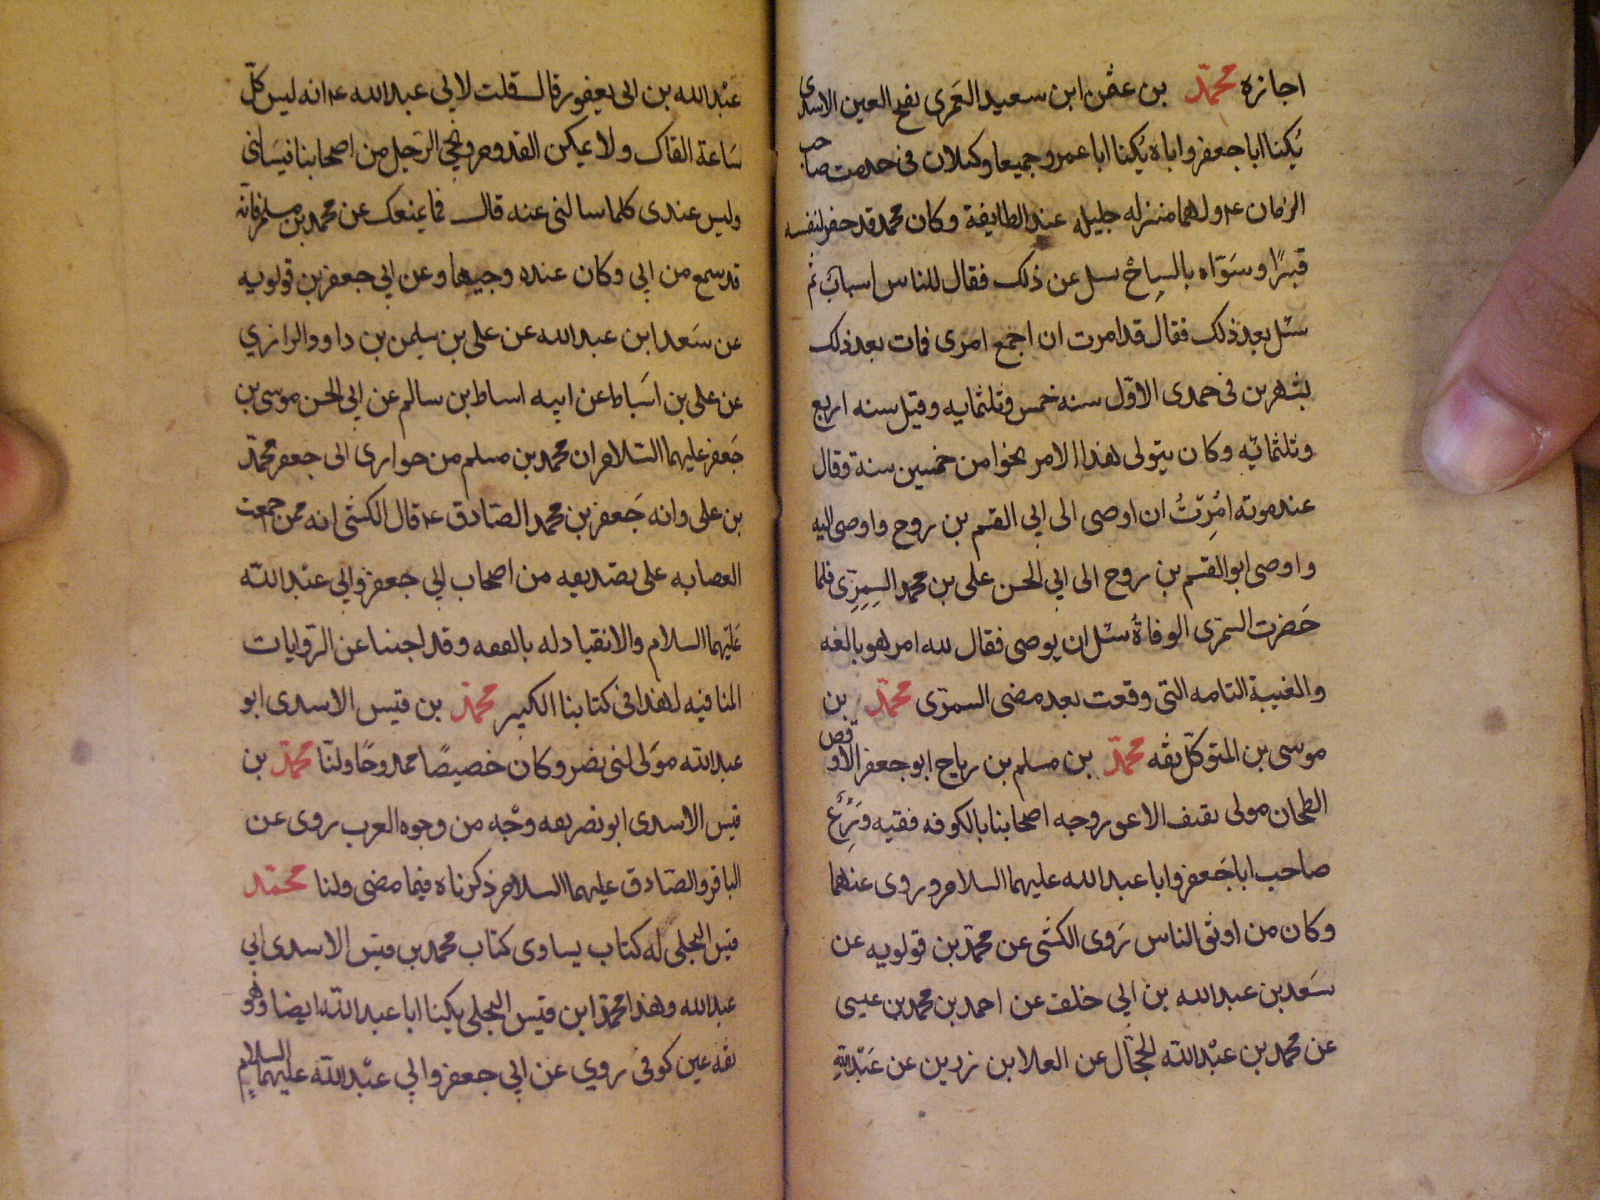 اجازه محمد بن عثمن ابن سعيد العمري بفتح العين الاسدي
يكنا ابا جعفر واباه يكنا ابا عمرو جميعا وكيلان في خدمت صاحب
الزمان ع ولهما منزله جليله عند الطايفة وكان محمد قد حفر لنفسه
قبرًا وسَوّاه بالسِاجْ سل عن ذلك فقال للناس اسباب ثم
سئل بعد ذلك فقال قد امرت ان اجمع امري فمات بعد ذلك
بشهرين في جمدى الاوّل سنه خمس وثلثمايه وقيل سنه اربع
وثلثمائيه وكان يتولى هذا الامر نحوا من خمسين سنة وقال
عند موته اُمِرْتُ ان اوصى الى ابي القسم بن روح واوصى اليه
واوصى ابو القسم بن روح الى ابي الحسن على بن محمد السِمِرّى فلما
حَضرت السمرى الوفاةُ سئل ان يوصى فقال لله امر هو بالغه
والغيبة التامه التى وقعت بعد مضى السمرّى محمد بن
موسى بن المتوكّل ثقه محمد بن مسلم بن رباح ابو جعفر الاوقص
الطحان مولى ثقيف الاعور وجه اصحابنا بالكوفه فقيه وَرِعٌ
صاحب ابا جَعفر وابا عبد الله عليهما السلام وروى عنهما
وكان من اوثق الناس رَوى الكشى عن محمّد بن قولويه عن
سَعد بن عبد الله بن ابي خلف عن احمد بن محمد بن عيسى
عن محمد بن عبْد الله الحجّال عن العلا بن رزين عن عَبْد الله
عبْد الله بن ابى يعفور قال قلت لابي عبد الله ع انه ليس كلّ
سَاعة القاك ولا يمكن القدوم ويجئ الرّجل من اصحابنا فيسَالني
وليس عندى كلما سالني عنه قال فما يمنعك عن محمد بن مسلم فانّه
قد سمع من ابي وكان عنده وجيها وعن ابي جعفر بن قولويه
عن سَعد ابن عبد الله عن على بن سليمن بن داود الرازي
عن على بن اسَباط عن ابيه اسباط بن سالم عن ابي الحسن موسى بن
جَعفر عليهما السّلام ان محمد بن مسلم من حوارى ابى جعفر محمّد
بن على وانه جَعفر بن محمد الصّادق ع قال الكشى انه ممن اجمعت
العصابه على تصديقه من اصحاب ابي جعفر وابي عبْد الله
عَليهما السلام والانقياد له بالفقه وقد اجبنا عن الرّوايات
المنافيه لهذا في كتابنا الكبير محمّد بن قيس الاسدى ابو
عبد الله مَولى لبنى نصر وكان خصيصًا ممدوحًا ولنا محمّد بن
قيس الاسدى ابو نصر ثقه وجْه من وجوه العرب روى عن
الباقر والصّادق عليهما السلام ذكرناه فيما مضى ولنا محمّد
قيس البجلى له كتاب يساوى كتاب محمد بن قيس الاسدى ابي
عبد الله وهذا محمّد ابن قيس البجلى يكنا ابا عبد الله ايضا وهو
ثقه عين كوفى رَوي عن ابي جعفر وابي عبْد الله عليهما السلام